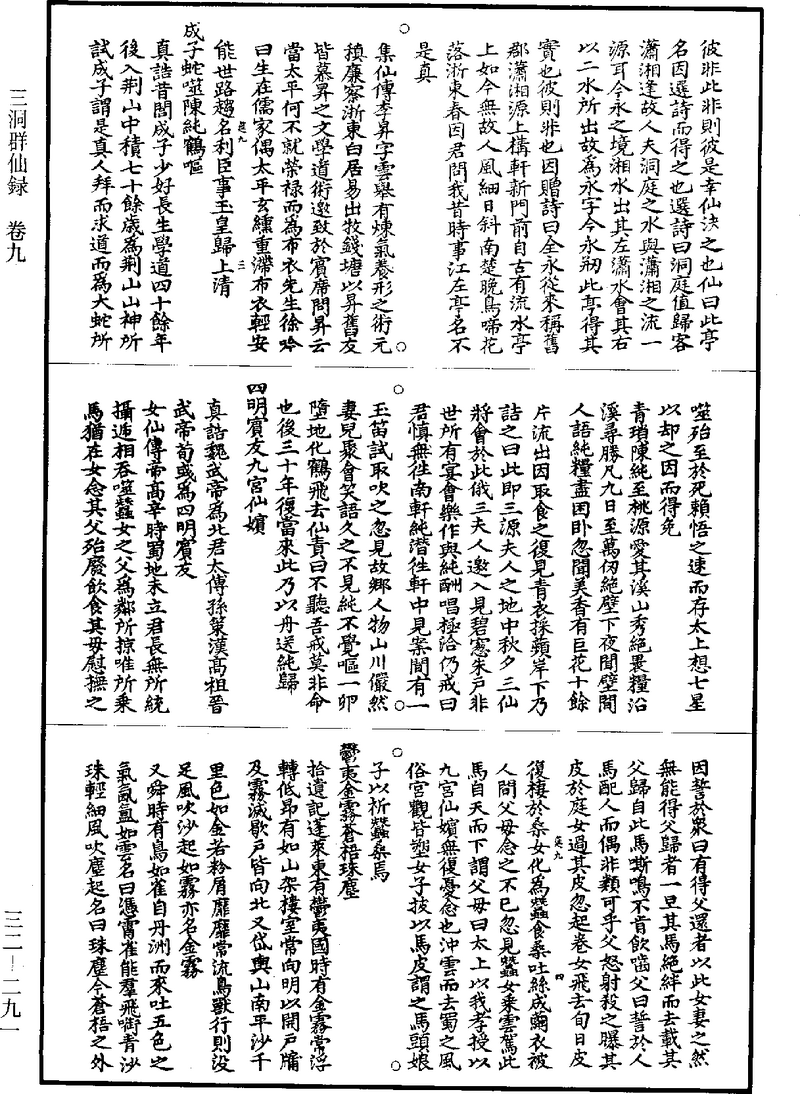 三洞群仙録　卷九
彼非此非則彼是幸仙決之也仙曰此亭
名因選詩而得之也選詩曰洞庭值歸客
瀟湘逢故人夫洞庭之水與瀟湘之流一
源耳今永之境湘水出其左瀟水會其右
以二水所出故爲永字今永刱此亭得其
實也彼則非也因贈詩曰全永從來稱舊
郡瀟湘源上構軒新門前自古有流水亭
上如今無故人風細日斜南楚晚鳥啼花
落浙東春因君問我昔時事江左亭名不
是真
集仙傳李昇字雲舉有煉氣養形之術元
稹廉察浙東白居易出牧錢塘以昇舊友
皆慕昇之文學道術邀致於賓席問昇云
當太平何不就榮禄而為布衣先生徐吟
曰生在儒家偶太平玄纁重滯布衣輕安
能世路趨名利臣事玉皇歸上清
成子蛇噬陳純鶴嘔
真誥昔閭成子少好長生學道四十餘年
後入荆山中積七十餘歲為荆山山神所
試成子謂是真人拜而求道而爲大蛇所
噬殆至於死賴悟之速而存太上想七星
以却之因而得免
青瑣陳純至桃源愛其溪山秀絕畏糧沿
溪尋勝凡九日至萬仞絕壁下夜聞壁間
人語純糧盡困卧忽聞美香有巨花十餘
片流出因取食之復見青衣採蘋岸下乃
詰之曰此即三源夫人之地中秋夕三仙
將會於此俄三夫人邀入見碧窻朱戸非
世所有宴會樂作與純酬唱極洽仍戒曰
君慎無往南軒純潛徃軒中見案間有一
玉笛試取吹之忽見故鄉人物山川儼然
妻兒聚會笑語久之不見純不覺嘔一卵
墮地化鶴飛去仙責曰不聽吾戒莫非命
也後三十年復當來此乃以舟送純歸
四明賓友九宮仙嬪
真誥魏武帝為北君太傅孫策漢高祖晉
武帝荀彧為四明賓友
女仙傳帝高辛時蜀地未立君長無所統
攝遞相吞噬蠶女之父爲鄰所掠唯所乗
馬猶在女念其父殆廢飲食其母慰撫之
因誓於衆曰有得父還者以此女妻之然
無能得父歸者一旦其馬絕絆而去載其
父歸自此馬嘶鳴不肯飲嚙父曰誓於人
馬配人而偶非類可乎父怒射殺之曝其
皮於庭女過其皮忽起卷女飛去旬日皮
復棲於桑女化為蠶食桑吐絲成繭衣被
人間父母念之不已忽見蠶女乘雲駕此
馬自天而下謂父母曰太上以我孝授以
九宮仙嬪無復憂愈也沖雲而去蜀之風
俗宮觀皆塑女子披以馬皮謂之馬頭娘
子以祈蠶桑焉
鬱夷金霧蒼梧珠塵
拾遺記蓬萊東有鬱夷國時有金霧常浮
轉低昂有如山架樓室常向明以開戸牖
及霧滅歇戸皆向北又岱輿山南平沙千
里色如金若粉屑靡靡常流鳥獸行則没
足風吹沙起如霧亦名金霧
又舜時有鳥如雀自丹洲而來吐五色之
氣氤氲如雲名曰憑霄雀能羣飛銜青沙
珠輕細風吹塵起名曰珠塵今蒼梧之外
三二—二九一